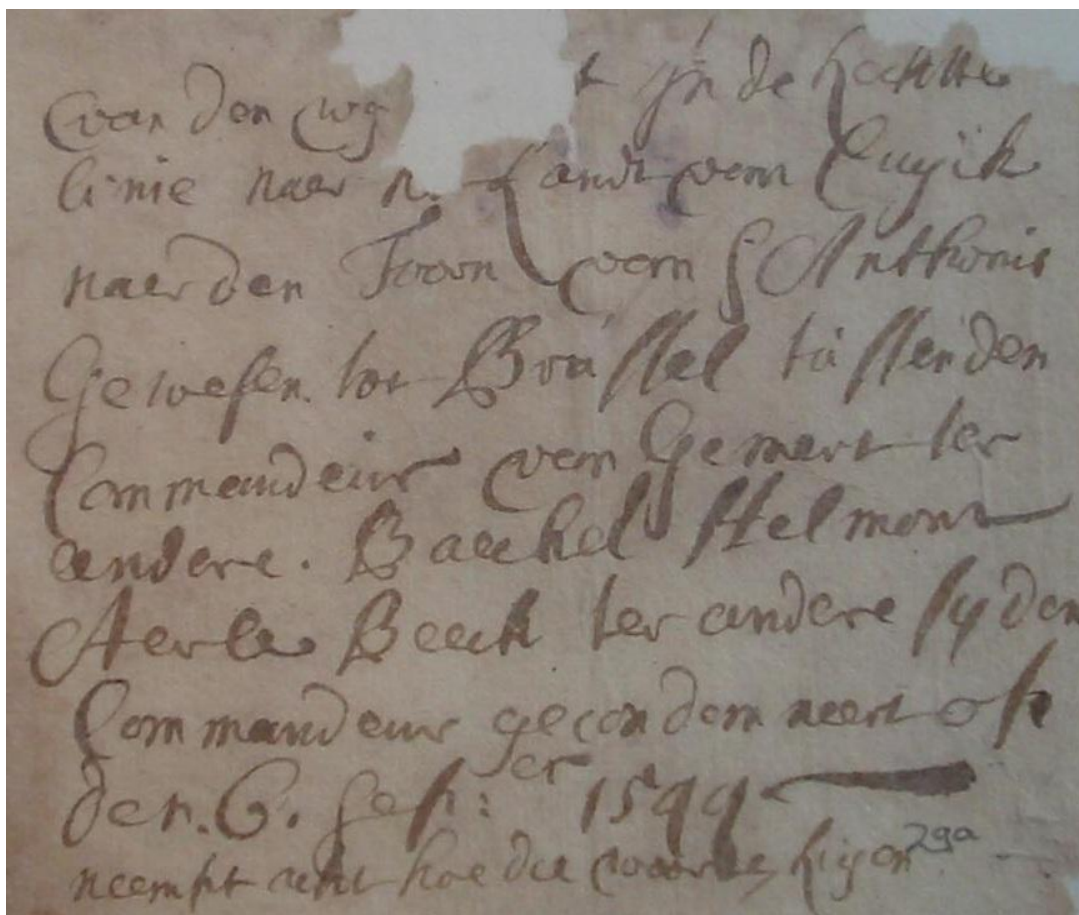 van den weg t in de rechte
linie naer Landt van Cuyck
naer den Toorn van S Anthonis
Gewesen tot Brussel tussen den
Commandeur van Gemert ter
andere. Baeckel Helmont
Aerle Beeck ter andere syden
Commandeur gecondemneert op
den. 6. sep: 1544
neempt acht hoe die woorden liggen
29a